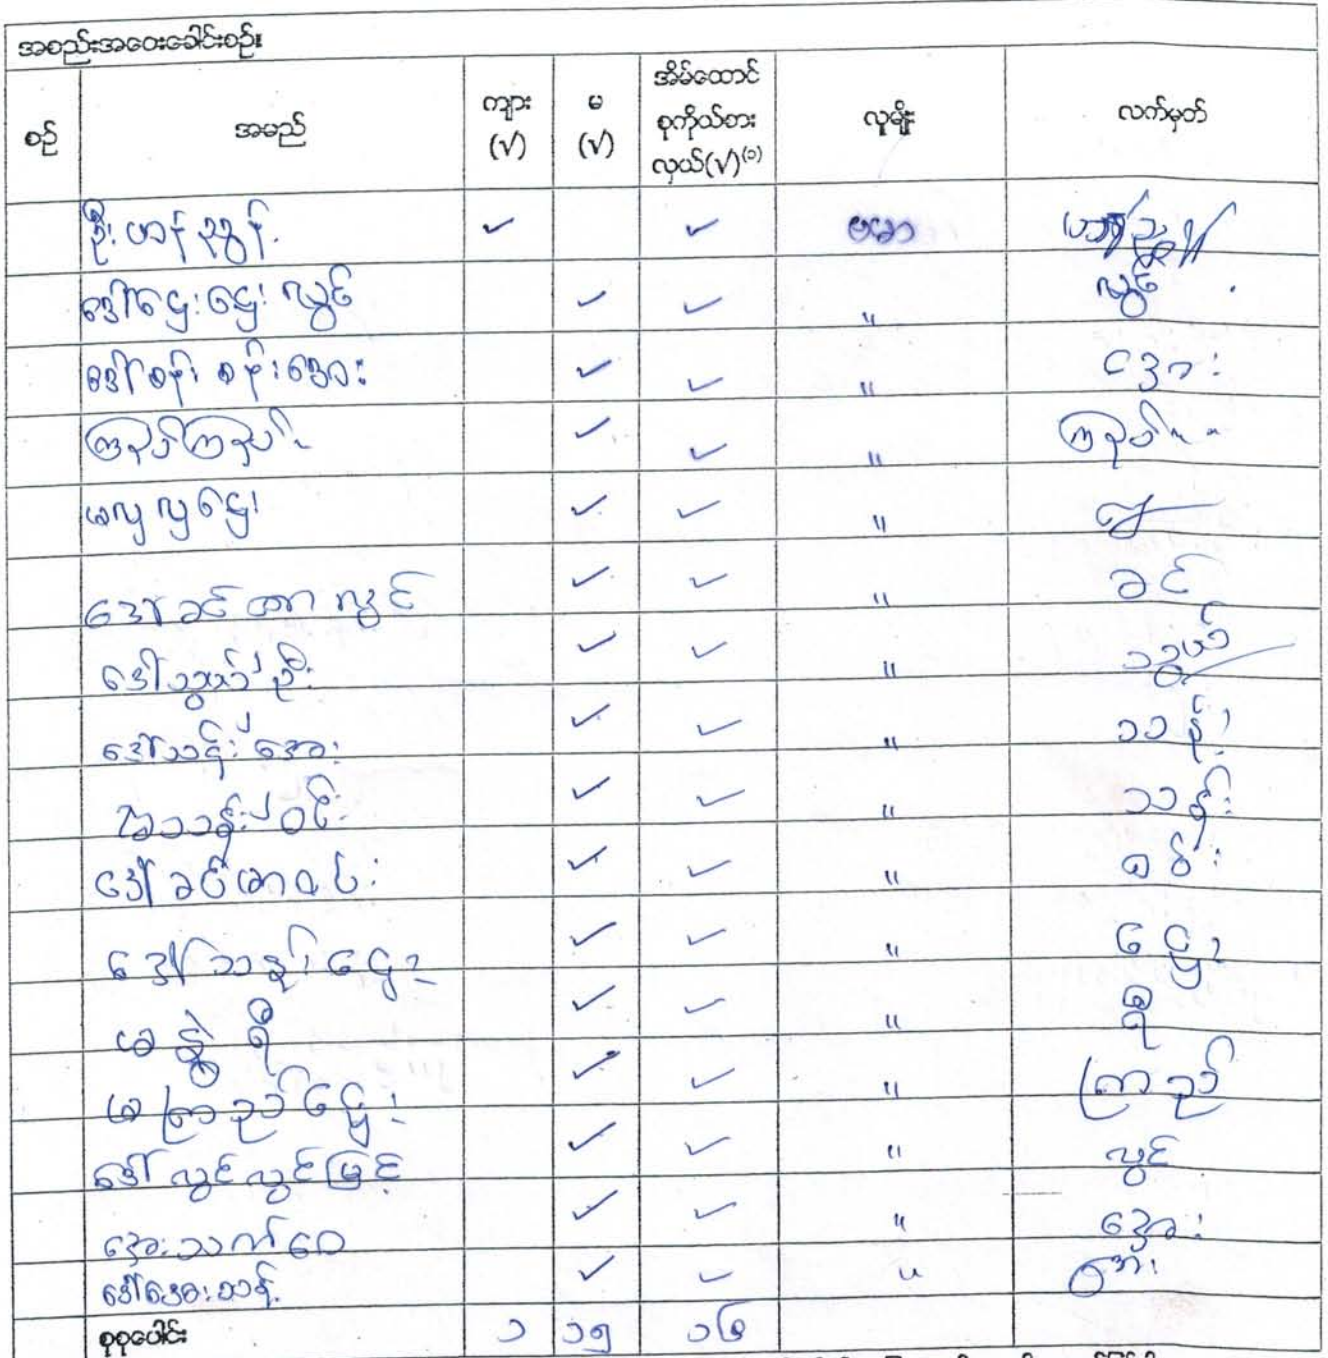 အစည်းအဝေးခေါင်းစဉ်း
စဉ် အမည် ကျား (√) မ (√) အိမ်ထောင်စုကိုယ်စားလှယ်(√)(၁) လူမျိုး လက်မှတ်
ဦး ဟန် ညွန့် ✓ ✓ ဗမာ
ဒေါ်ဌေးဌေး လွင် ✓ ✓ " လွင်
ဒေါ်စန်း စန်းအေး ✓ ✓ " အေး
ကြည်ကြည် ✓ ✓ " ကြည်
မလှ လှဌေး ✓ ✓ "
ဒေါ်ခင် ထား လွင် ✓ ✓ " ခင်
ဒေါ်သွယ် ဦး ✓ ✓ " သွယ်
ဒေါ်သန်း အေး ✓ ✓ " သန်း
သန်း ဝင်း ✓ ✓ " သန်း
ဒေါ်ခင် ✓ ✓ "
ဒေါ်သန်း ဌေး ✓ ✓ " ဌေး
မ နွဲ့ ရီ ✓ ✓ " ရီ
မ ကြည် ဌေး ✓ ✓ " ကြည်
ဒေါ် လွင်လွင်မြင့် ✓ ✓ " လွင်
အေးသက်ဝေ ✓ ✓ " အေး
ဒေါ်အေးသန်း ✓ ✓ " အေး
စုစုပေါင်း ၁ ၁၅ ၁၆